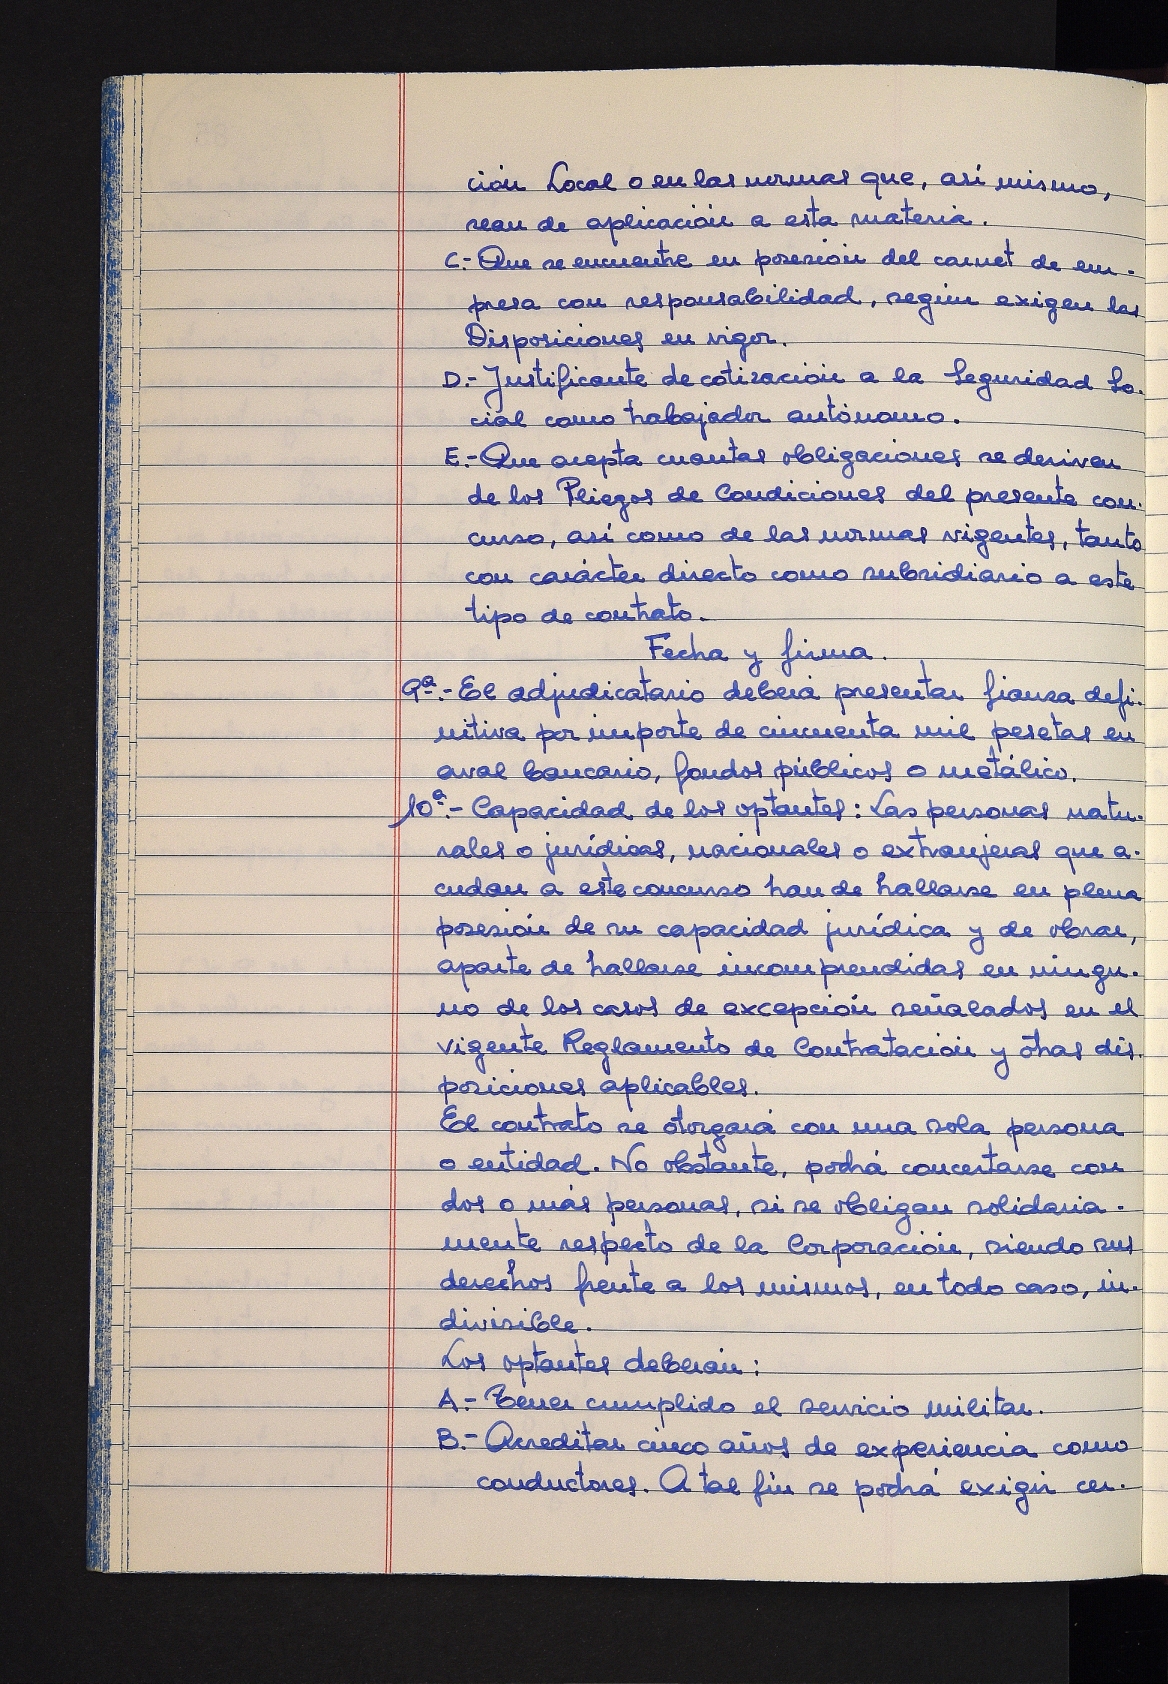 ción Local o en las normas que, así mismo,
sean de aplicación a esta materia.
C.- Que se encuentre en posesión del carnet de em-
presa con responsabilidad, según exigen las
Disposiciones en vigor.
D.- Justificante de cotización a la Seguridad So-
cial como trabajador autónomo.
E.- Que acepta cuantas obligaciones se deriven
de los Pliegos de Condiciones del presente con-
curso, así como de las normas vigentes, tanto
con carácter directo como subsidiario a este
tipo de contrato.
Fecha y firma.
9ª.- El adjudicatario deberá presentar fianza defi-
nitiva por importe de cincuenta mil pesetas en
aval bancario, fondos públicos o metálico.
10ª.- Capacidad de los optantes: Las personas natu-
rales o jurídicas, nacionales o extranjeras que a-
cudan a este concurso han de hallarse en plena
posesión de su capacidad jurídica y de obrar,
aparte de hallarse incomprendidas en ningu-
no de los casos de excepción señalados en el
vigente Reglamento de Contratación y otras dis-
posiciones aplicables.
El contrato se otorgará con una sola persona
o entidad. No obstante, podrá concertarse con
dos o más personas, si se obligan solidaria-
mente respecto de la Corporación, siendo sus
derechos frente a los mismos, en todo caso, in-
divisible.
Los optantes deberán:
A.- Tener cumplido el servicio militar.
B.- Acreditar cinco años de experiencia como
conductores. A tal fin se podrá exigir cer-